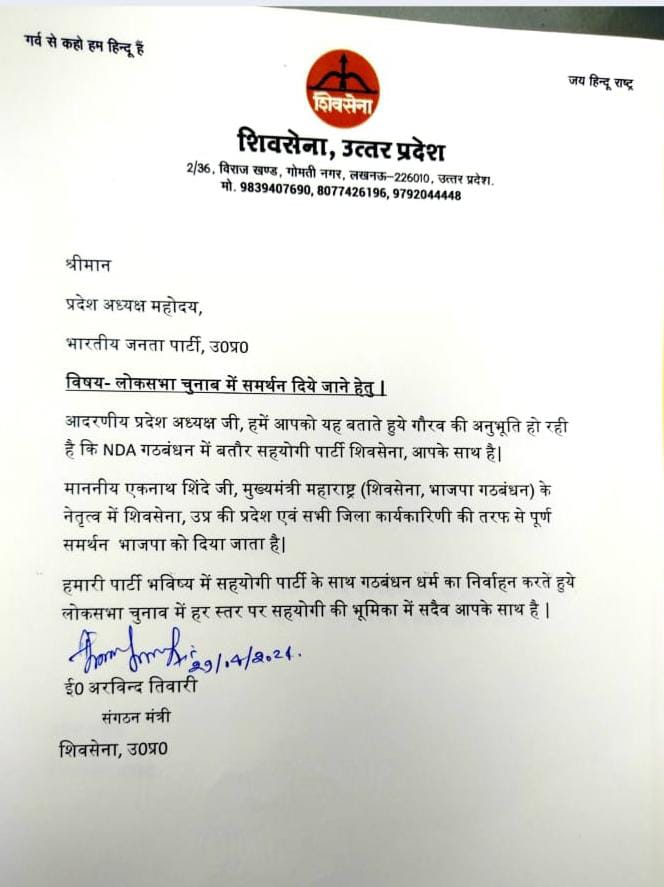 गर्व से कहो हम हिन्दू हैं
जय हिन्दू राष्ट्र
शिवसेना
शिवसेना, उत्तर प्रदेश
2/36, विराज खण्ड, गोमती नगर, लखनऊ-226010, उत्तर प्रदेश.
मो. 9839407690, 8077426196, 9792044448
श्रीमान
प्रदेश अध्यक्ष महोदय,
भारतीय जनता पार्टी, उ0प्र0
विषय- लोकसभा चुनाब में समर्थन दिये जाने हेतु |
आदरणीय प्रदेश अध्यक्ष जी, हमें आपको यह बताते हुये गौरव की अनुभूति हो रही
है कि NDA गठबंधन में बतौर सहयोगी पार्टी शिवसेना, आपके साथ है|
माननीय एकनाथ शिंदे जी, मुख्यमंत्री महाराष्ट्र (शिवसेना, भाजपा गठबंधन) के
नेतृत्व में शिवसेना, उप्र की प्रदेश एवं सभी जिला कार्यकारिणी की तरफ से पूर्ण
समर्थन भाजपा को दिया जाता है|
हमारी पार्टी भविष्य में सहयोगी पार्टी के साथ गठबंधन धर्म का निर्वाहन करते हुये
लोकसभा चुनाव में हर स्तर पर सहयोगी की भूमिका में सदैव आपके साथ है |
29/04/2024.
ई0 अरविन्द तिवारी
संगठन मंत्री
शिवसेना, उ0प्र0